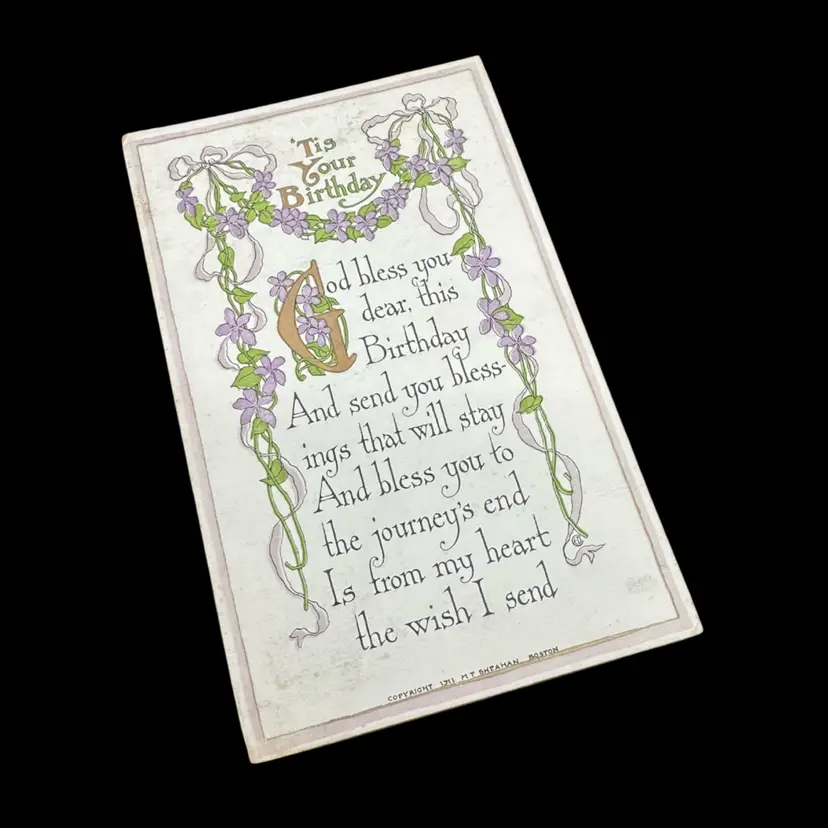 'Tis
Your
Birthday
God bless you
dear, this
Birthday
And send you bless-
ings that will stay
And bless you to
the journey's end
Is from my heart
the wish I send
COPYRIGHT 1911 M.T. SHEAHAN BOSTON